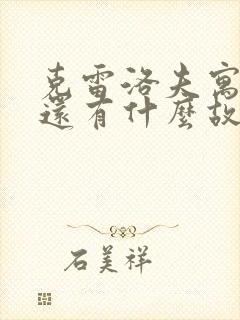 克雷洛夫寓
還有什麼故
石美祥